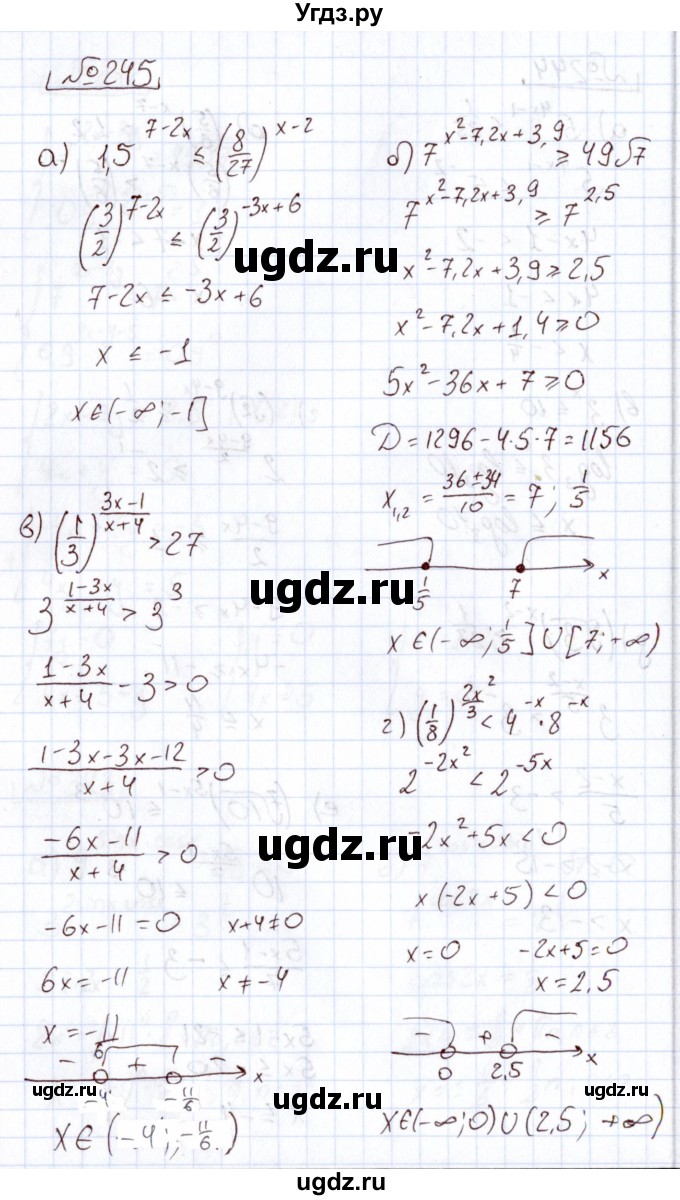 Угдз.ру
№245
а) 1,5^(7-2x) ≤ (8/27)^(x-2)
(3/2)^(7-2x) ≤ (3/2)^(-3x+6)
7-2x ≤ -3x+6
x ≤ -1
x∈(-∞; -1]
б) 7^(x²-7,2x+3,9) ≥ 49√7
7^(x²-7,2x+3,9) ≥ 7^(2,5)
x²-7,2x+3,9 ≥ 2,5
x²-7,2x+1,4 ≥ 0
5x²-36x+7 ≥ 0
D = 1296-4·5·7 = 1156
x₁,₂ = (36±34)/10 = 7; 1/5
1/5 7 x
x∈(-∞; 1/5] U [7; +∞)
в) (1/3)^((3x-1)/(x+4)) > 27
3^((1-3x)/(x+4)) > 3³
(1-3x)/(x+4) - 3 > 0
(1-3x-3x-12)/(x+4) > 0
(-6x-11)/(x+4) > 0
-6x-11 = 0 x+4 ≠ 0
6x = -11 x ≠ -4
x = -11/6
- + - x
-4 -11/6
x∈(-4; -11/6)
г) (1/8)^(2x²/3) < 4^(-x) · 8^(-x)
2^(-2x²) < 2^(-5x)
-2x²+5x < 0
x(-2x+5) < 0
x = 0 -2x+5 = 0
x = 2,5
- + - x
0 2,5
x∈(-∞; 0) U (2,5; +∞)
ugdz.ru
ugdz.ru
ugdz.ru
ugdz.ru
ugdz.ru
ugdz.ru
ugdz.ru
ugdz.ru
ugdz.ru